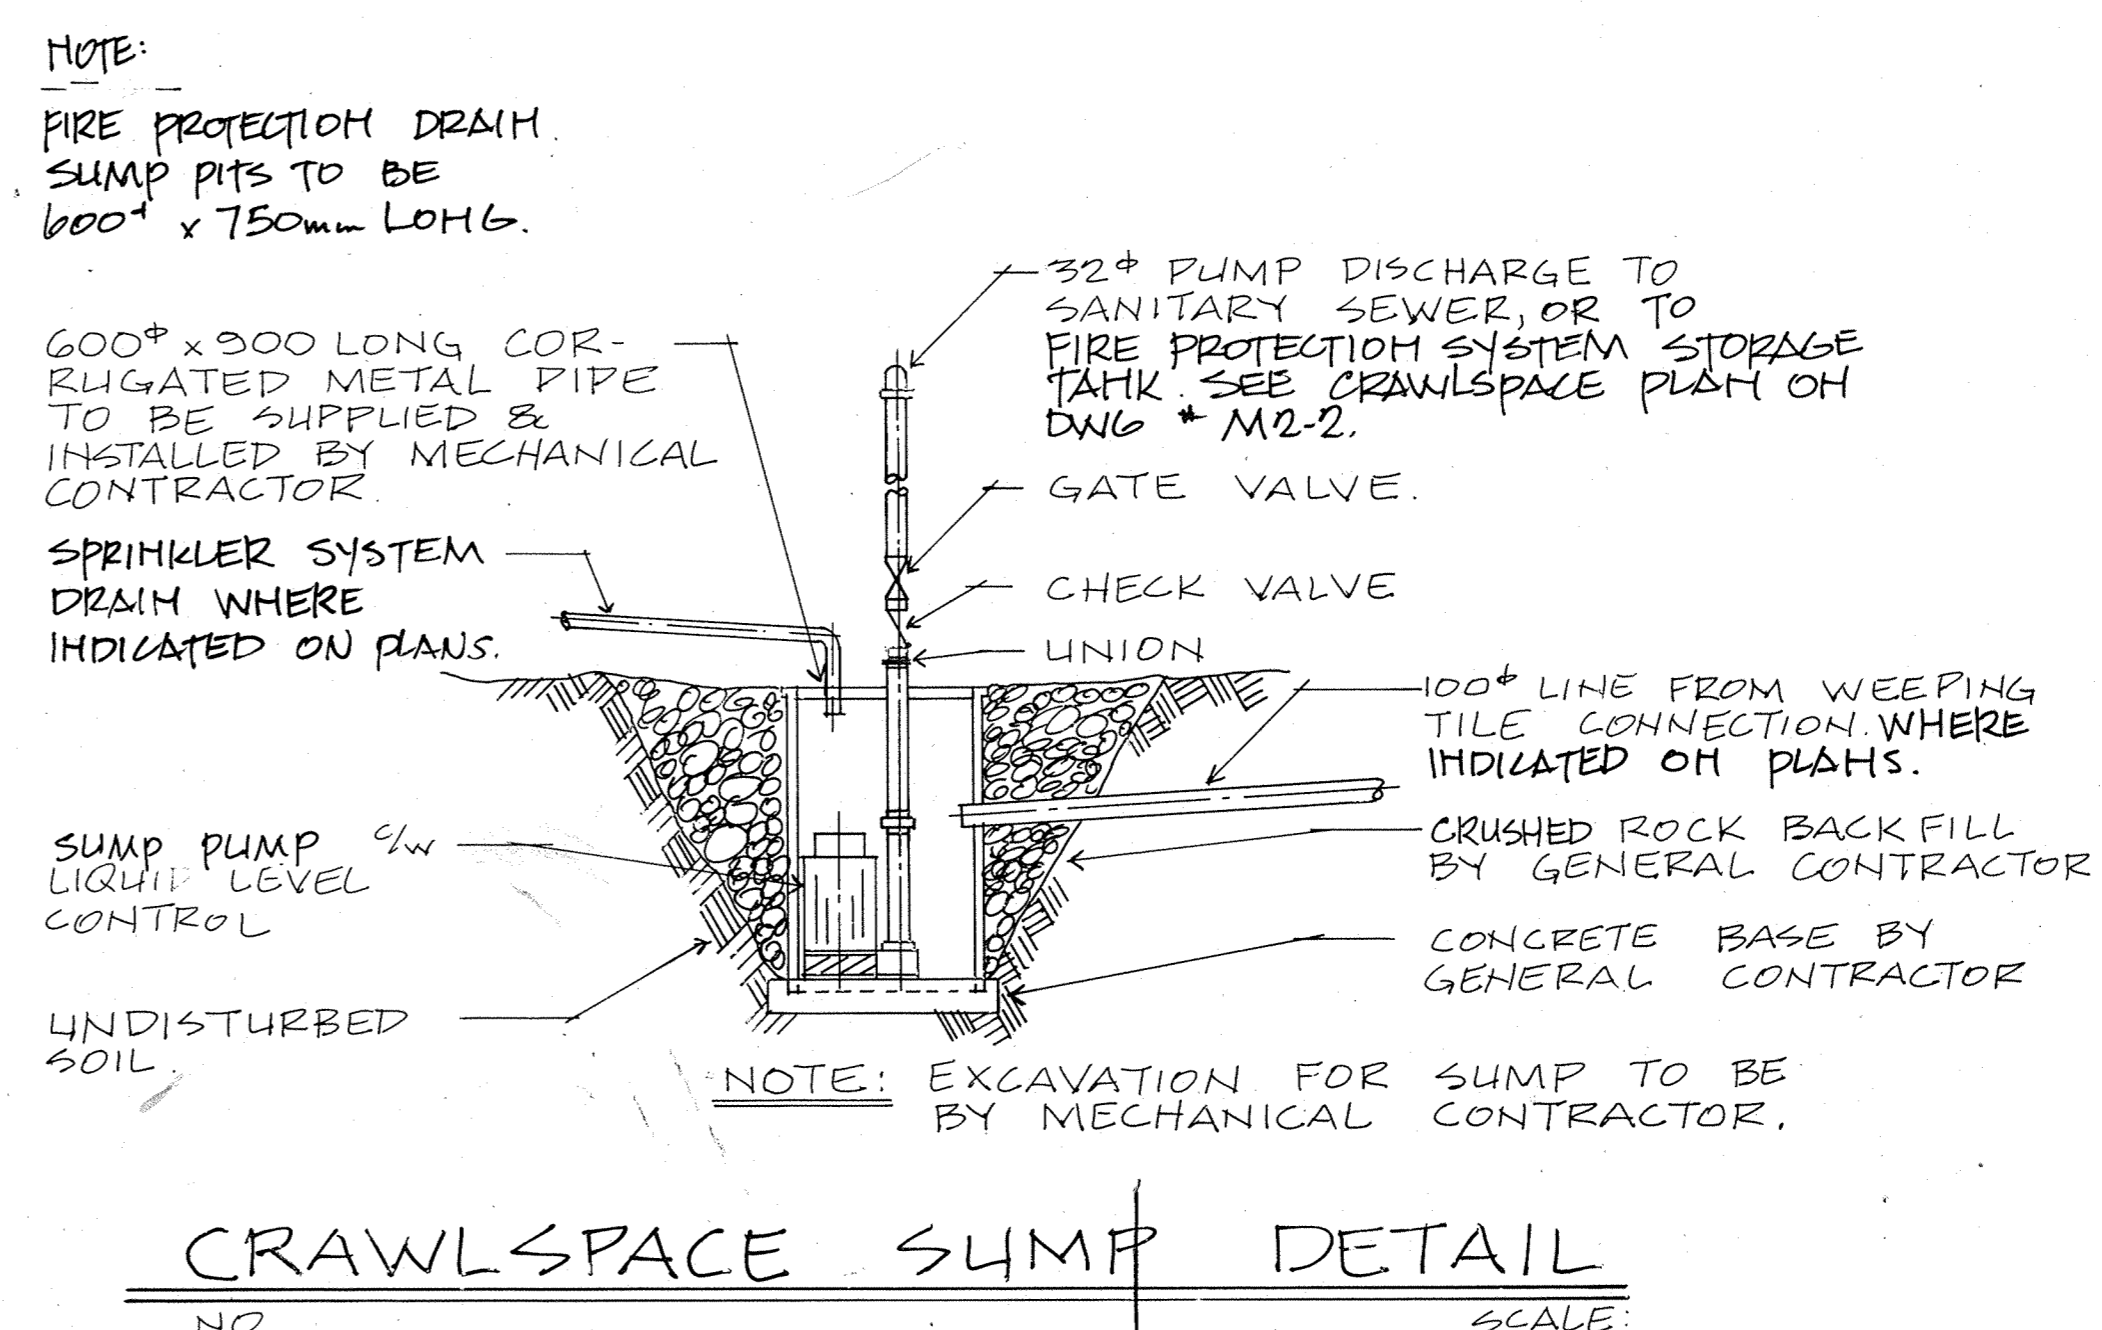 NOTE:
FIRE PROTECTION DRAIN.
SUMP PITS TO BE
600⌀ x 750mm LONG.
600⌀ x 900 LONG COR-
RUGATED METAL PIPE
TO BE SUPPLIED &
INSTALLED BY MECHANICAL
CONTRACTOR.
SPRINKLER SYSTEM
DRAIN WHERE
INDICATED ON PLANS.
SUMP PUMP C/W
LIQUID LEVEL
CONTROL
UNDISTURBED
SOIL.
32⌀ PUMP DISCHARGE TO
SANITARY SEWER, OR TO
FIRE PROTECTION SYSTEM STORAGE
TANK. SEE CRAWLSPACE PLAN ON
DWG # M2-2.
GATE VALVE.
CHECK VALVE
UNION
100⌀ LINE FROM WEEPING
TILE CONNECTION. WHERE
INDICATED ON PLANS.
CRUSHED ROCK BACKFILL
BY GENERAL CONTRACTOR
CONCRETE BASE BY
GENERAL CONTRACTOR
NOTE: EXCAVATION FOR SUMP TO BE
BY MECHANICAL CONTRACTOR.
CRAWLSPACE SUMP DETAIL
NO
SCALE: